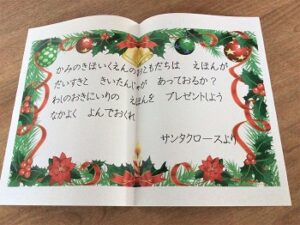 かみのきほいくえんのおこもだちは えほんが
だいすきと きいたんじゃが あっておるか?
わしのおきにいりの えほんを プレゼントしよう
なかよく よんでおくれ
サンタクロースより